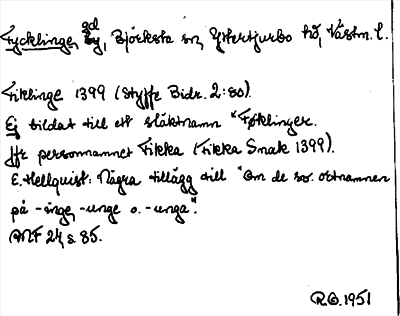 Tycklinge, gd, Björksta sn, Yttertjurbo hd, Västm. l.
Tiklinge 1399 (Styffe Bidr. 2:80).
Ej bildat till ett släktnamn "Tøklingar.
Jfr personnamnet Tikka (Tikka Snak 1399).
E. Hellquist: Några tillägg till "Om de sv. ortnamnen
på -inge, -unge o. -unga".
ANF 24, s. 85.
R.O. 1951